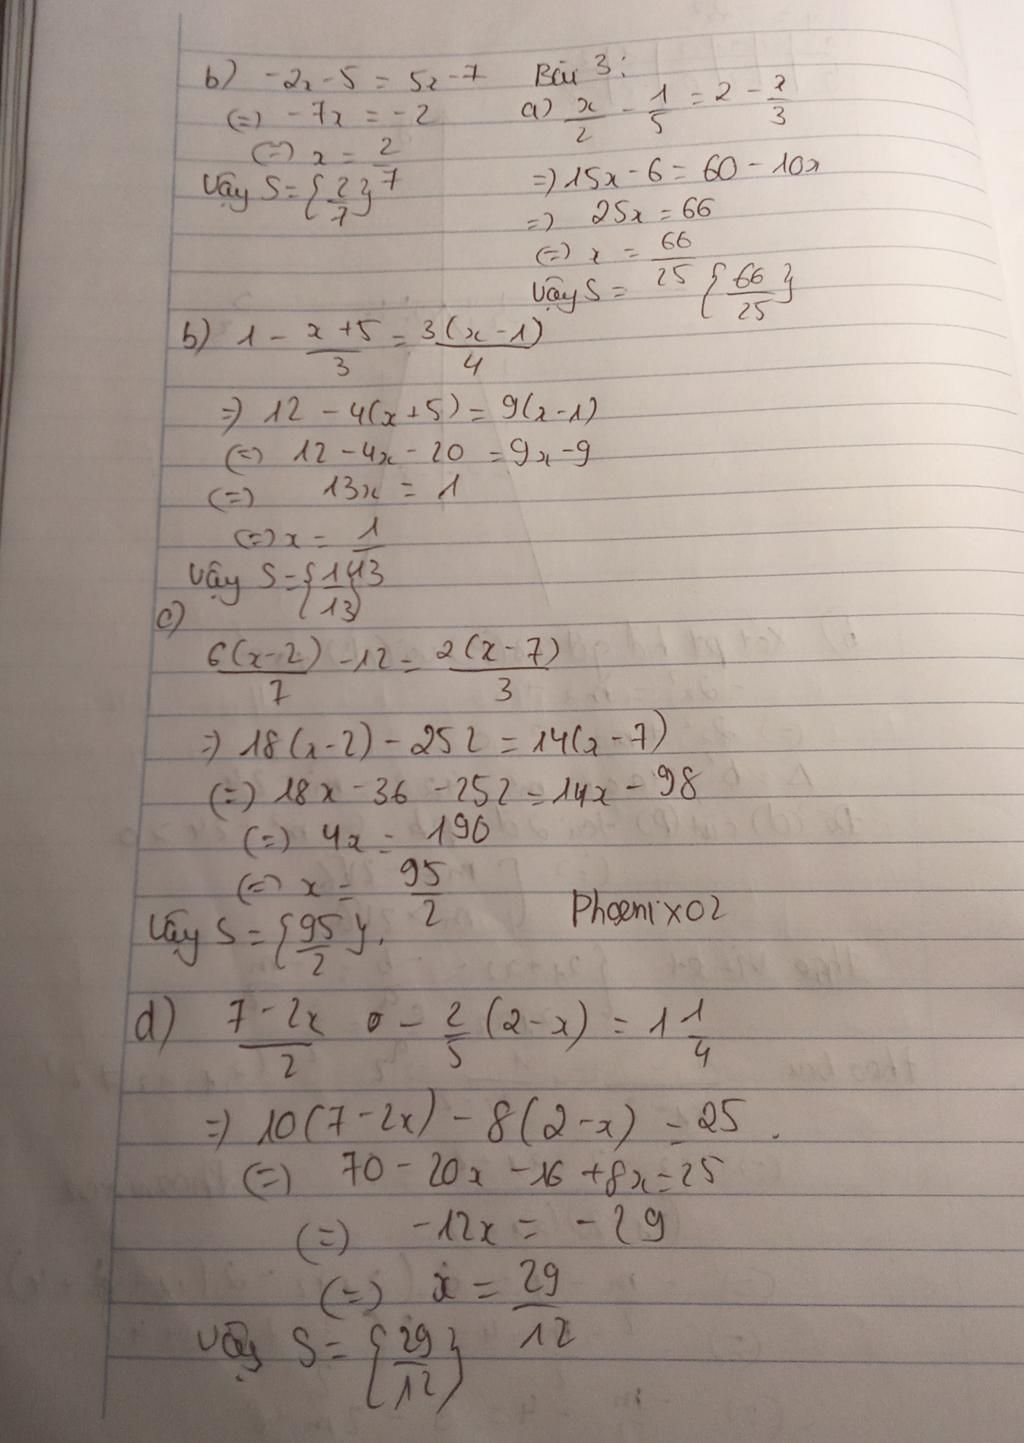 b) -2x-5 = 5x-7
(=) -7x = -2
(=) x = 2/7
Vậy S = {2/7}
Bài 3:
a) x/2 - 1/5 = 2 - x/3
=) 15x-6 = 60-10x
=) 25x = 66
(=) x = 66/25
Vậy S = {66/25}
b) 1 - x+5/3 = 3(x-1)/4
=) 12 - 4(x+5) = 9(x-1)
(=) 12-4x-20 = 9x-9
(=) 13x = 1
(=) x = 1/13
Vậy S = {1/13}
c)
6(x-2)/7 - 12 = 2(x-7)/3
=) 18(x-2) - 252 = 14(x-7)
(=) 18x-36-252 = 14x-98
(=) 4x = 190
(=) x = 95/2
Vậy S = {95/2}.
Phoenix02
d) 7-2x/2 - 2/5 (2-x) = 1 1/4
=) 10(7-2x) - 8(2-x) = 25.
(=) 70-20x-16+8x=25
(=) -12x = -29
(=) x = 29/12
Vậy S = {29/12}